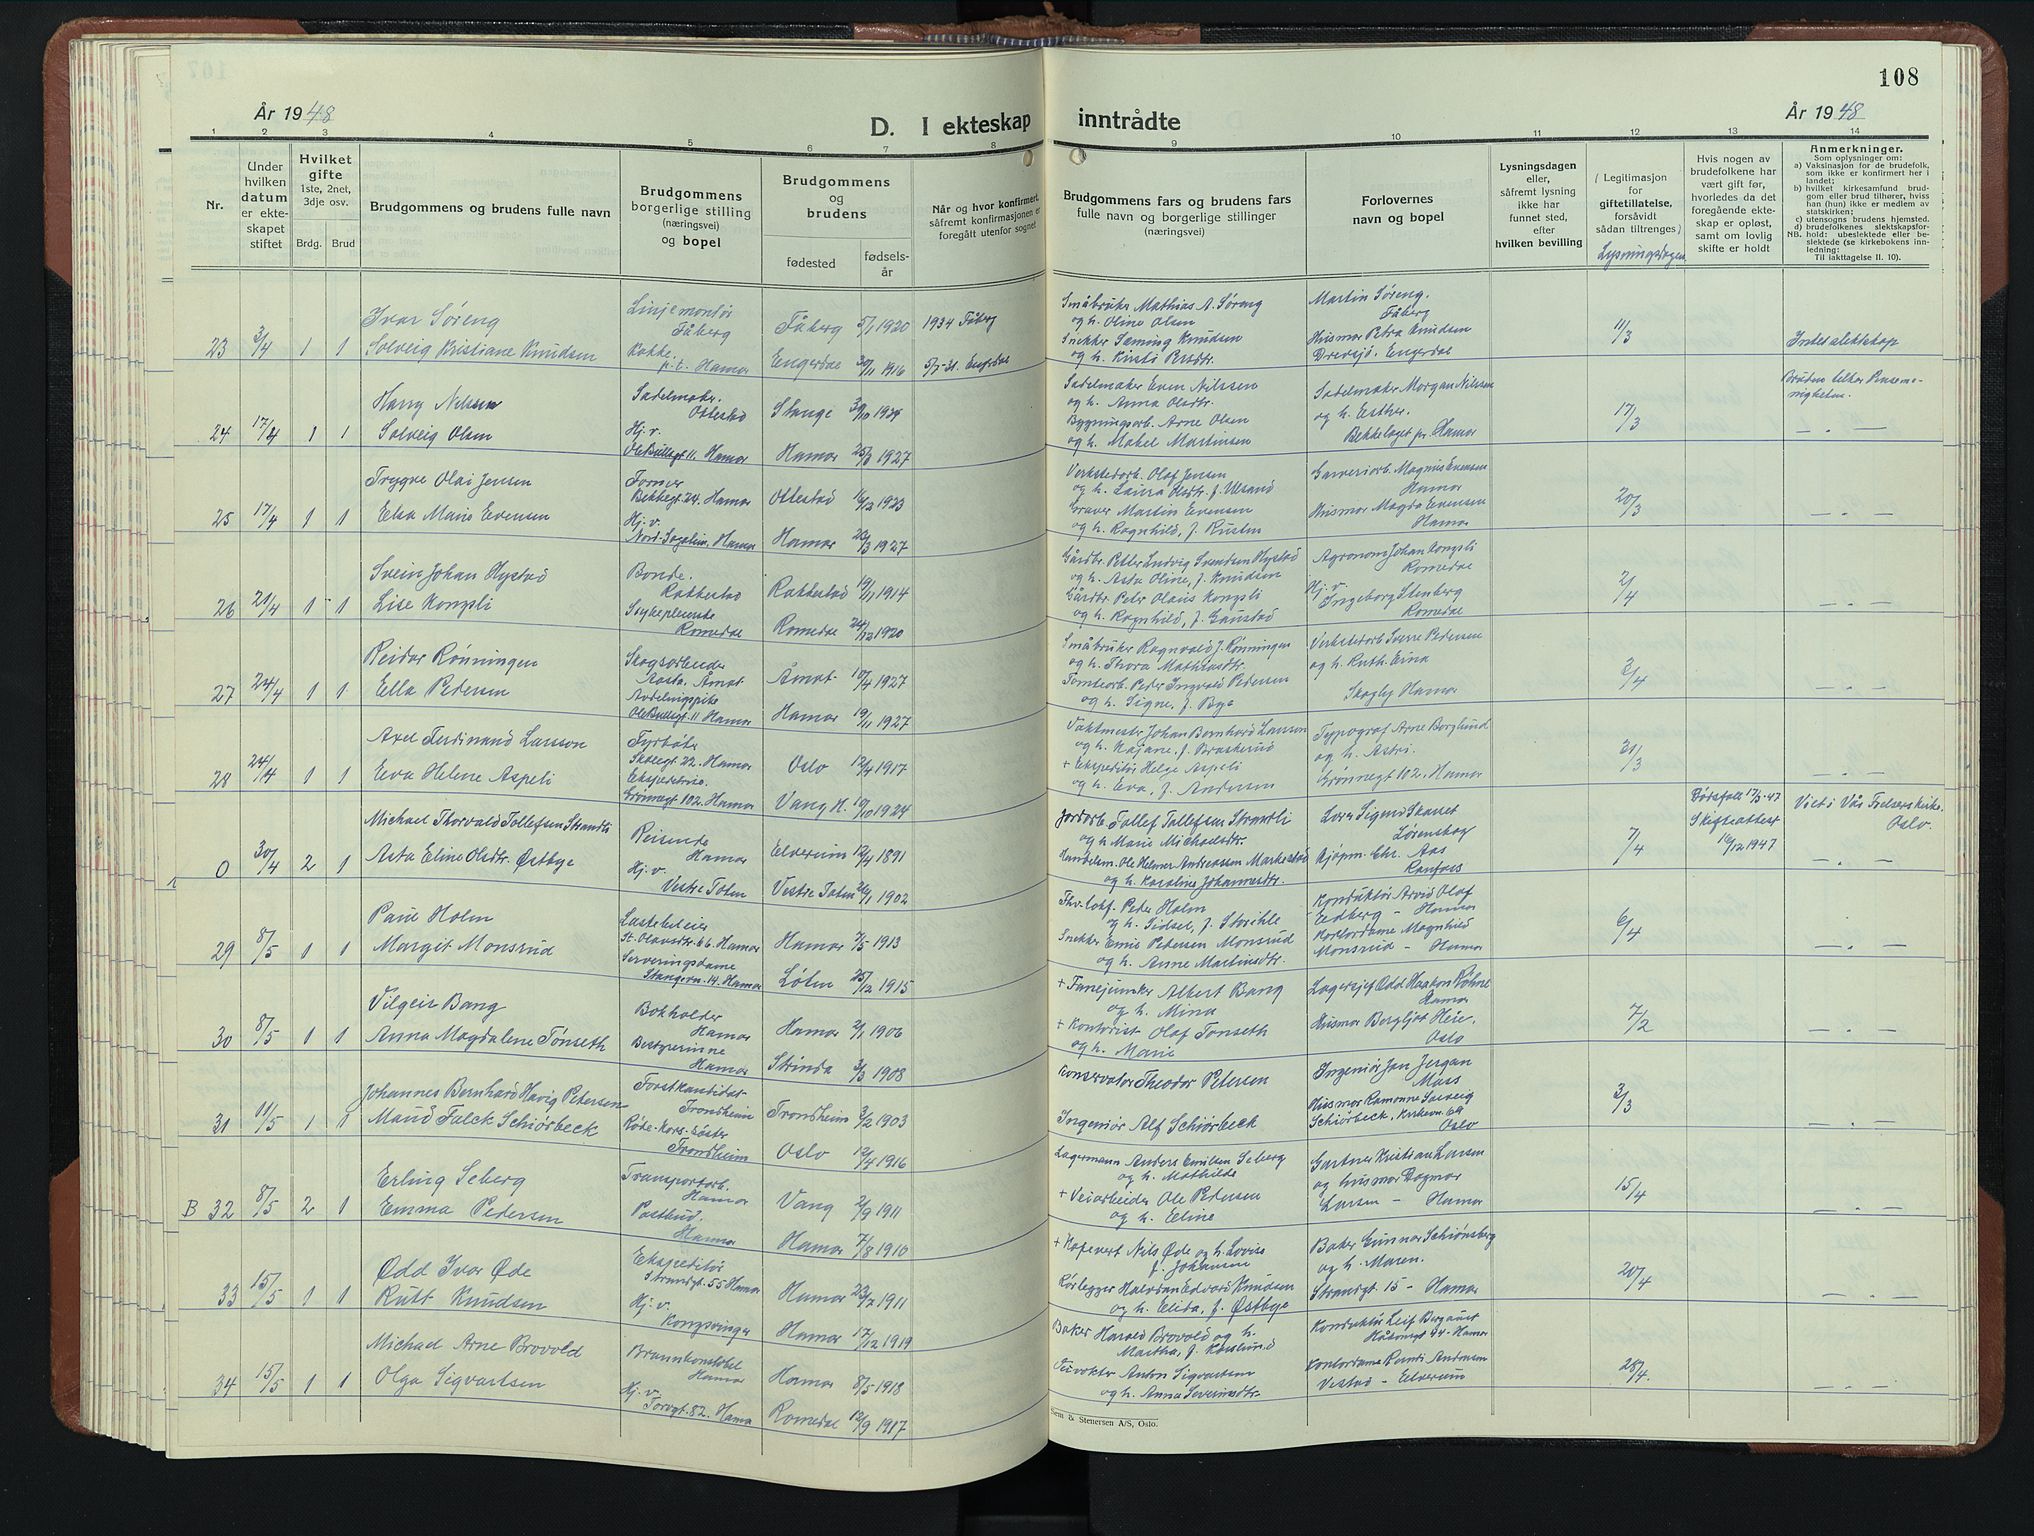 108
År 1948
D. I ekteskap inntrådte
År 1948
1 2 3 4 5 6 7 8 9 10 11 12 13 14
Nr.
Under hvilken datum er ekteskapet stiftet
Hvilket gifte
1ste, 2net, 3dje osv.
Brdg. Brud
Brudgommens og brudens fulle navn
Brudgommens borgerlige stilling (næringsvei) og bopel
Brudgommens og brudens
fødested
fødselsår
Når og hvor konfirmert, såfremt konfirmasjonen er foregått utenfor sognet
Brudgommens fars og brudens fars fulle navn og borgerlige stillinger (næringsvei)
Forlovernes navn og bopel
Lysningsdagen eller, såfremt lysning ikke har funnet sted, efter hvilken bevilling
(Legitimasjon for giftetillatelse, forsåvidt sådan tiltrenges)
Lysningsdagen
Hvis nogen av brudefolkene har vært gift før, hvorledes da det foregående ekteskap er opløst, samt om lovlig skifte er holdt
Anmerkninger.
Som oplysninger om:
a) Vaksinasjon for de brudefolk, som ikke er konfirmert her i landet;
b) hvilket kirkesamfund brudgom eller brud tilhører, hviss han (hun) ikke er medlem av statskirken;
c) utensogns brudens hjemsted.
d) brudefolkenes slektskapsforhold: ubeslektede eller beslektede (se kirkebokens innledning:
NB.
Til iakttagelse II. 10).
23 3/4 1 1
Ivar Søreng
Solveig Kristiane Knudsen
Linjemontør
Fåberg
Kokke
p.t. Hamar
Fåberg 5/1 1920 1934 Fåberg
Engerdal 30/11 1916 5/7-31 Engerdal
Småbruker Mathias A. Søreng
og h. Oline Olsen
Snekker Sæming Knudsen
og h. Kirsti Persdtr.
Martin Søreng.
Fåberg
Husmor Petra Knudsen
Drevsjø, Engerdal
11/3
Intet slektskap
24 17/4 1 1
Harry Nilssen
Solveig Olsen
Sadelmaker.
Ottestad
Hj. v.
Ole Bullsgt 11. Hamar
Stange
Hamar 1927
Sadelmaker Even Nilssen
og h. Anna Olsdtr.
Bygningsarb. Arne Olsen
og h. Mabel Martinsen
Sadelmaker Morgan Nilssen
og h. Esther.
Bekkelaget pr. Hamar
17/3
— „ —
25 17/4 1 1
Trygve Olai Jensen
Elsa Marie Evensen
Former
Bekkegt. 24. Hamar
Hj. v.
Hamar
Ottestad 16/12 1923
Hamar 23/3 1927
Verkstedarb. Olaf Jensen
og h. Laura Olsdtr. f. Ulsand
Graver Martin Evensen
og h. Ragnhild, f. Rusten
Garveriarb. Magnus Evensen
Hamar
Husmor Magda Evensen
Hamar
20/3
— „ —
26 21/4 1 1
Svein Johan Hystad
Lise Kongsli
Bonde.
Rakkestad
Sykepleierske
Romedal
Rakkestad 19/11 1914
Romedal 24/12 1920
Gårdbr. Petter Ludvig Svendsen Hystad
og h. Asta Oline, f. Knudsen
Gårdbr. Peter Olaus Kongsli
og h. Ragnhild, f. Gaustad
Agronom Johan Kongsli
Romedal
Hj. v.
Ingeborg Stenberg
Romedal
2/4
— „ —
27 24/4 1 1
Reidar Rønningen
Ella Pedersen
Skogsarbeider
Åsta. Åmot
Avdelingspike
Ole Bullsgt. 11 Hamar
Åmot 10/4 1927
Hamar 19/11 1927
Småbruker Ragnvald J. Rønningen
og h. Thora Mathiasdtr.
Tomtearb. Peder Ingvald Pedersen
og h. Signe, f. Bye
Verkstedarb. Sverre Pedersen
og h. Ruth Eina
Skogly Hamar
3/4
— „ —
28 24/4 1 1
Axel Ferdinand Larsson
Eva Helene Aspeli
Fyrbøter
Skolegt. 22. Hamar
Ekspeditrise.
Grønnegt 102. Hamar
Oslo 12/4 1917
Vang H. 19/10 1924
Vaktmester Johan Bernhard Larsson
og h. Kajane, f. Braskerud
+ Ekspeditør Helge Aspeli
og h. Eva, f. Andersen
Typograf Arne Berglund
og h. Astri.
Grønnegt 102. Hamar
31/3
— „ —
0 30/4 2 1
Michael Thorvald Tollefsen Strandli
Asta Eline Olsdtr. Østbye
Reisende
Hamar
Hj. v.
Vestre Toten
Elverum 12/4 1891
Vestre Toten 26/1 1902
Jordarb. Tollef Tollefsen Strandli
og h. Marie Michaelsdtr.
Handelsm. Ole Helmer Andreassen Markestad
og h. Karoline Johannesdtr.
Sigurd Skaset
Lørenskog
Kjøpm. Chr. Aas
Raufoss
7/4
Dødsfall 17/3-47
Skifteattest
16/12 1947
Viet i Vår Frelsers kirke.
Oslo.
— „ —
29 8/5 1 1
Paul Holm
Margit Monsrud
Lastebileier
St. Olavsgt. 66. Hamar
Serveringsdame
Stangevn. 14. Hamar
Hamar 7/5 1913
Løten 25/12 1915
Peder Holm
og h. Sidsel, f. Storihle
Snekker Emil Pedersen Monsrud
og h. Anne Martinsdtr.
Konduktør Arvid Olaf
Edberg — Hamar
Kontordame Magnhild
Monsrud — Hamar
6/4
— „ —
30 8/5 1 1
Vilgeir Bang
Anna Magdalene Tønseth
Bokholder
Hamar
Bestyrerinne
Hamar
Hamar 2/1 1906
Strinda 3/3 1908
+ Fanejunker Albert Bang
og h. Mina
+ Kontorist Olaf Tønseth
og h. Marie
Lagersjef Odd Haakon Røhne
Hamar
Husmor Bergljot Heie,
Oslo
7/2
— „ —
31 11/5 1 1
Johannes Bernhard Havig Petersen
Maud Falck Schiørbeck
Forstkandidat
Trondheim
Røde-Kors-søster
Trondheim
Trondheim 3/2 1903
Oslo 12/4 1916
Konservator Theodor Petersen
Ingeniør Alf Schiørbeck
Ingeniør Jan Jergan
Moss
Husmor Ramonne Solveig
Schiørbeck, Kirkevn. 69
Oslo
3/3
— „ —
B 32 8/5 2 1
Erling Seberg
Emma Pedersen
Transportarb.
Hamar
Postbud.
Hamar
Vang 2/9 1911
Hamar 7/8 1910
Lagermann Anders Emilsen Seberg
og h. Mathilde
+ Veiarbeider Ole Pedersen
og h. Eline
Gartner Kristian Larsen
og husmor Dagmar
Larsen — Hamar
15/4
— „ —
33 15/5 1 1
Odd Ivar Øde
Rutt Knudsen
Ekspeditør
Strandgt. 55 Hamar
Hj. v.
Kongsvinger
Hamar 23/7 1911
Hamar 17/12 1919
+ Kafevert Nils Øde og h. Lovise
f. Johansen
Rørlegger Halvdan Edvard Knudsen
og h. Elida, f. Østbye
Baker Gunnar Schiønsberg
og h. Maren.
Strandgt 15 — Hamar
20/4
— „ —
34 15/5 1 1
Michael Arne Brovold
Olga Sigvartsen
Brannkonstabel
Hamar
Hj. v.
Torvgt. 82. Hamar
Hamar 8/5 1918
Romedal 12/9 1917
Baker Harald Brovold og h.
Martha, f. Korslund
Anton Sigvartsen
og h. Anna Severinsdtr.
Konduktør Leif Bergaust
Håkonsgt 94 - Hamar
Kontordame Randi Andresen
Vestad - Elverum
28/4.
— „ —
Sem & Stenersen A/S, Oslo.